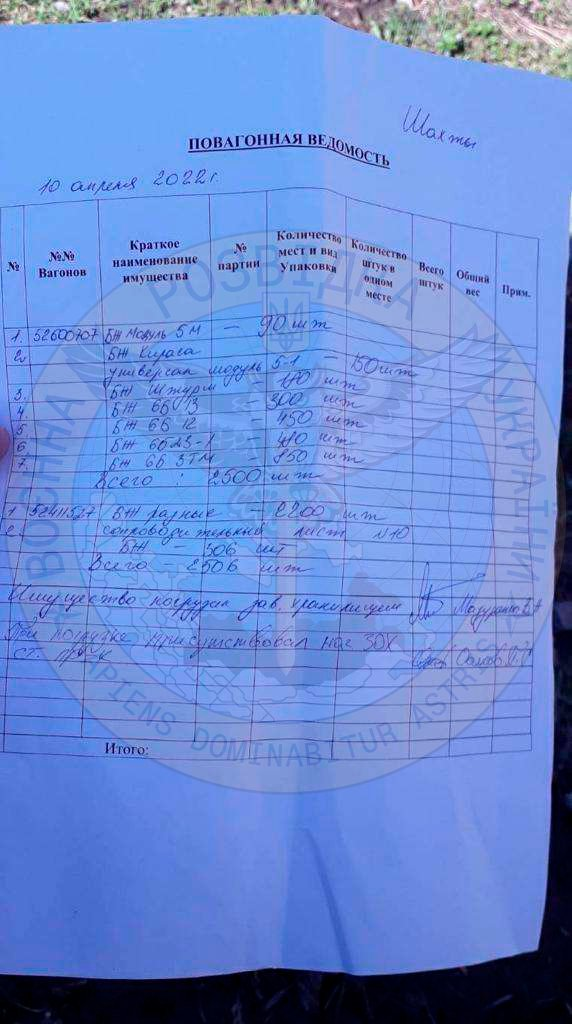 Шахты
ПОВАГОННАЯ ВЕДОМОСТЬ
10 апреля 2022г.
№ №№ Вагонов Краткое наименование имущества № партии Количество мест и вид Упаковки Количество штук в одном месте Всего штук Общий вес Прим.
1. 52600707 БЖ Модуль 5М — 90 шт
2. БЖ Кираса
универсал модуль 5-1 — 150 шт
3. БЖ Штурм шт
4. БЖ 6Б13 — 300 шт
5 БЖ 6Б12 — 450 шт
6 БЖ 6Б23-1 — шт
7. БЖ 6Б 3ТМ — 850 шт
Всего : 2500 шт
1 БЖ разные — 2200 шт
2. сопроводительный лист №10
БЖ — 306 шт
Всего — 2506 шт
Имущество погрузил зав. хранилищем
При погрузке присутствовал нач ЗОХ
ст. пр-к
Итого:
ВОЄННА РОЗВІДКА УКРАЇНИ
SAPIENS DOMINABITUR ASTRIS